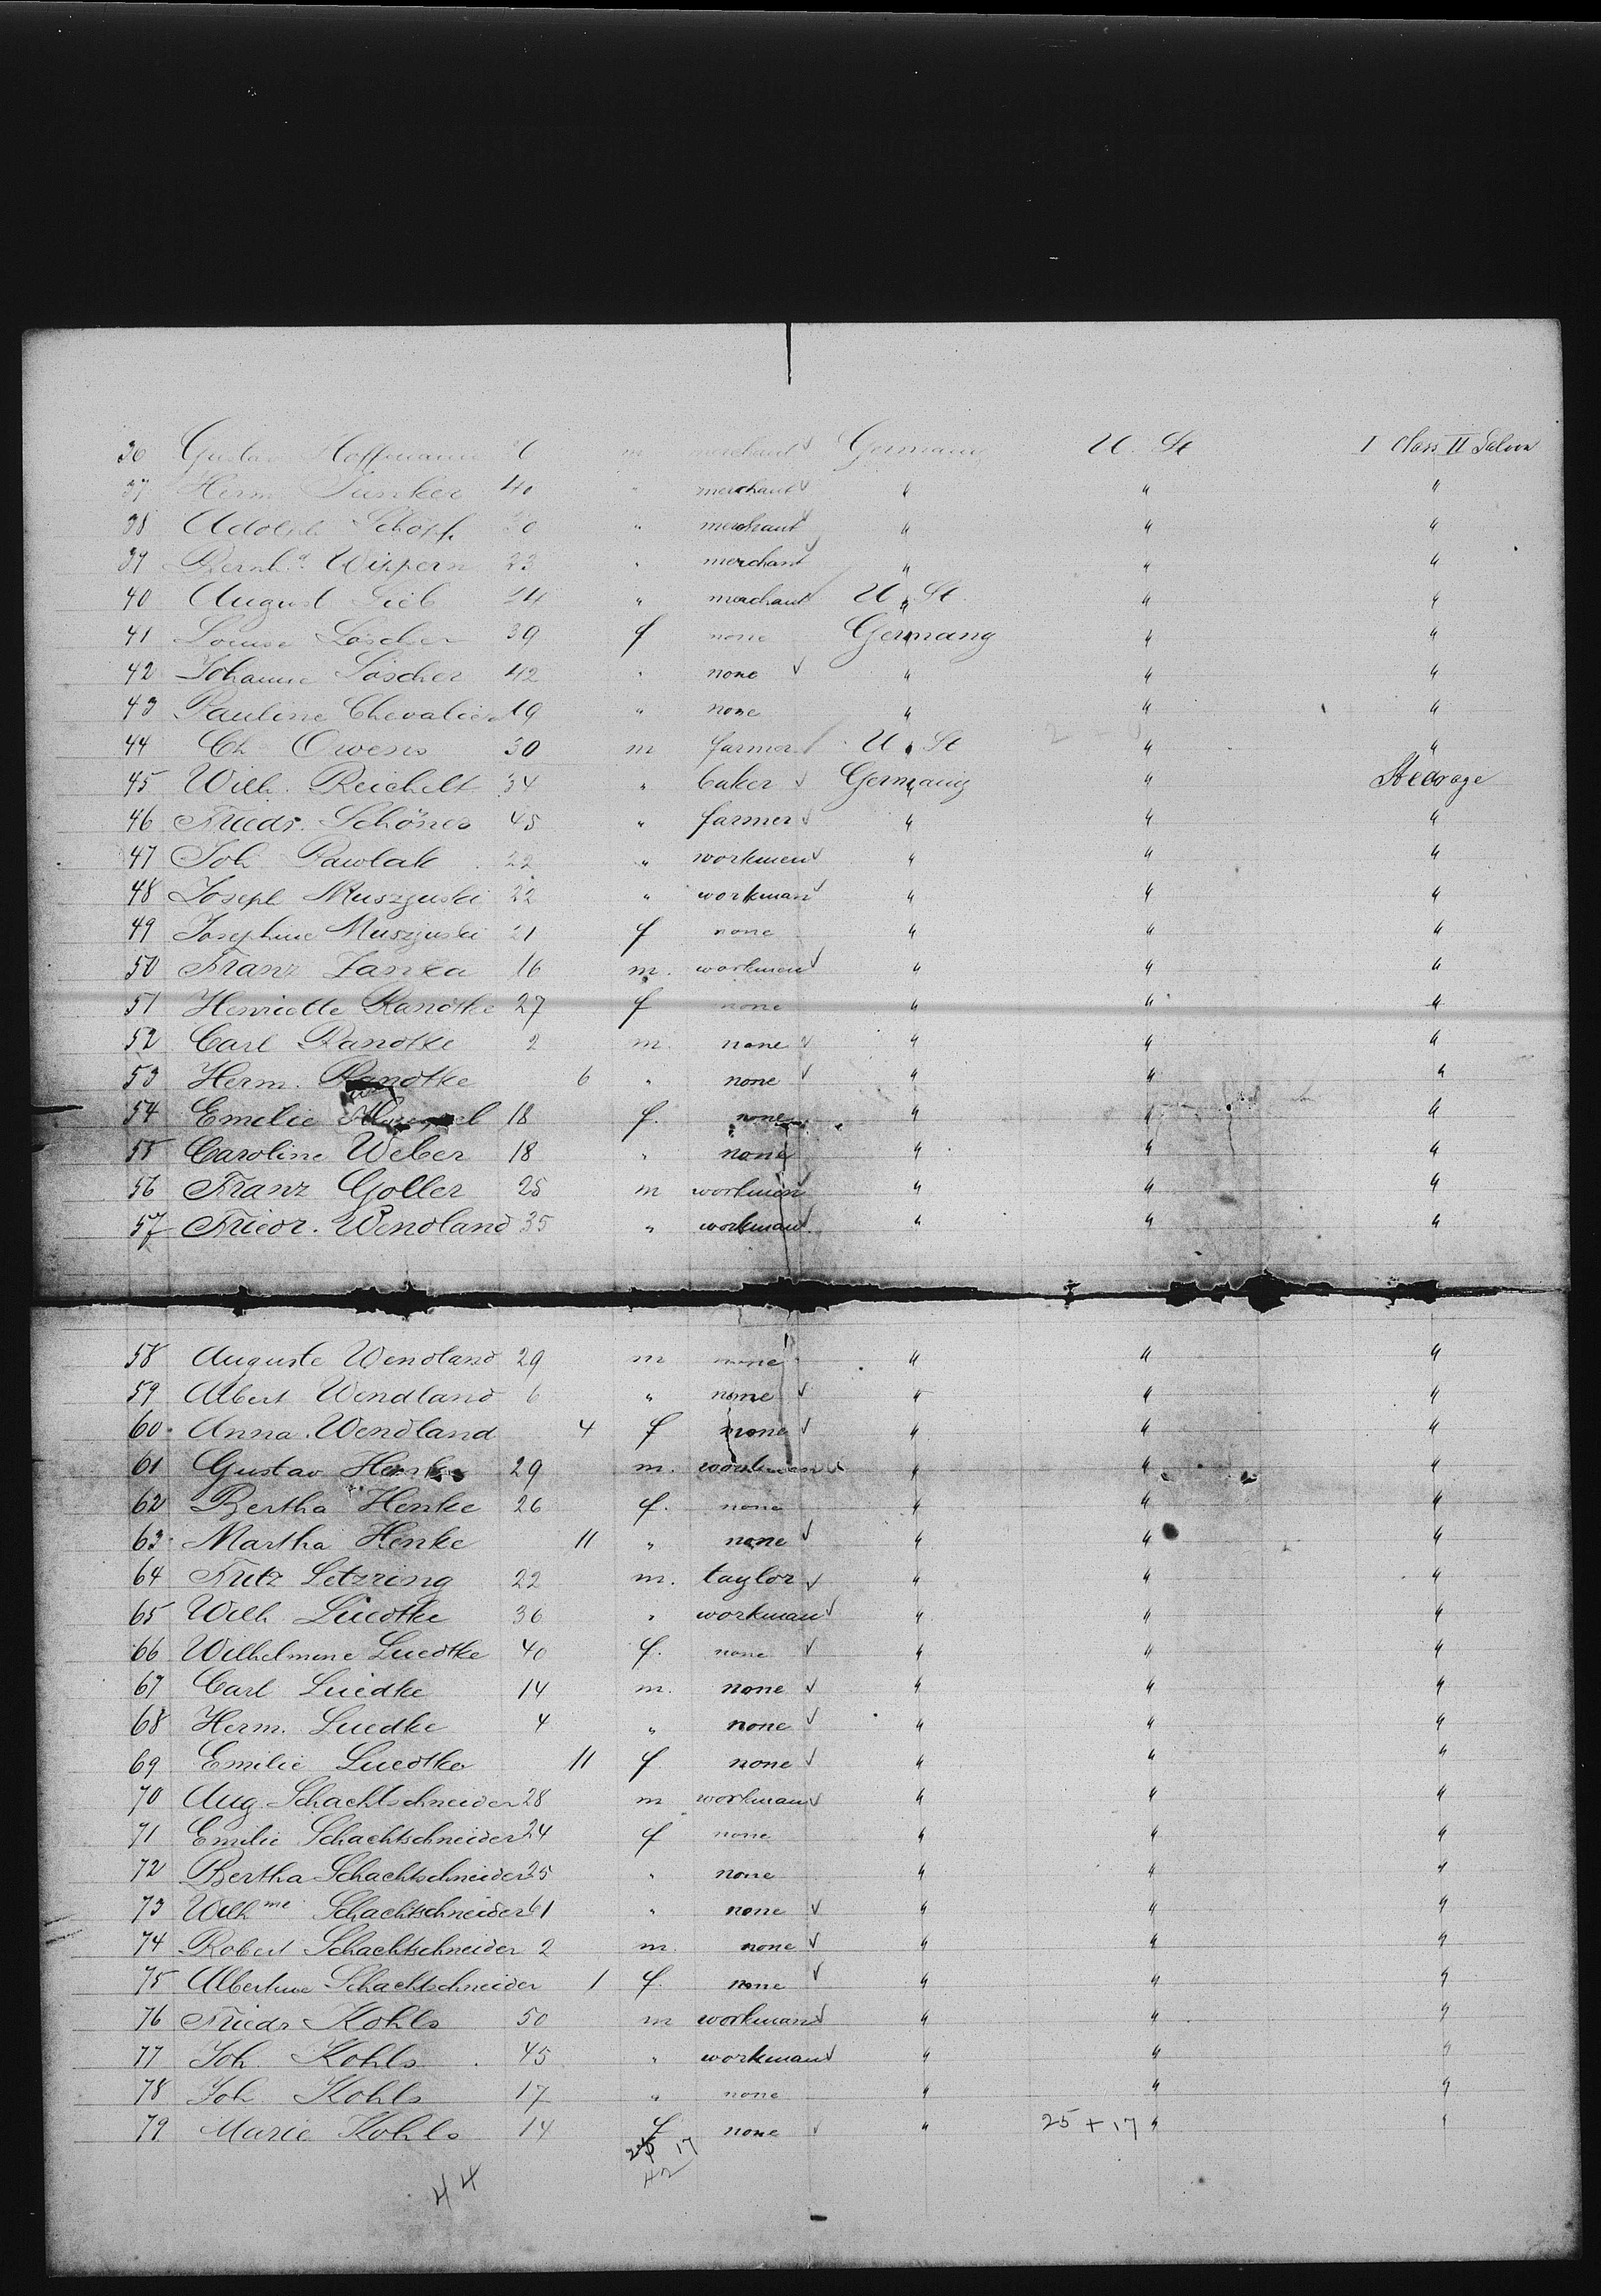 36 Gustav Hoffmann m merchant Germany U. St I Class II Saloon
37 Herm. Junker 40 " merchant " " "
38 Adolph Schöpf " merchant " " "
39 Bernhd. 23 " merchant " " "
40 August Lieb 24 " merchant U. St " "
41 Louise Löscher 39 f none Germany " "
42 Johanne Löscher 42 " none " " "
43 Pauline Chevalier 19 " none " " "
44 Ch Owens 30 m farmer U. St " "
45 Wilh. Reichelt 34 " baker Germany " Steerage
46 Friedr. Schöner 45 " farmer " " "
47 Joh Pawlak 22 " workmen " " "
48 Joseph Muszynski 22 " workman " " "
49 Josephine Muszynski 21 f none " " "
50 Franz Janka 16 m. workmen " " "
51 Henriette Randtke 27 f none " " "
52 Carl Randtke 2 m. none " " "
53 Herm. Randtke 6 " none " " "
54 Emelie 18 f. none " " "
55 Caroline Weber 18 " none " " "
56 Franz Goller 25 m workmen " " "
57 Friedr. Wendland 35 " workman " " "
58 Auguste Wendland 29 m none " " "
59 Albert Wendland 6 " none " " "
60 Anna Wendland 4 f none " " "
61 Gustav Henke 29 m. workman " " "
62 Bertha Henke 26 f. none " " "
63 Martha Henke 11 " none " " "
64 Fritz Letzring 22 m. taylor " " "
65 Wilh Luedtke 36 " workman " " "
66 Wilhelmine Luedtke 40 f. none " " "
67 Carl Luedke 14 m. none " " "
68 Herm. Luedke 4 " none " " "
69 Emilie Luedtke 11 f none " " "
70 Aug. Schachtschneider 28 m workman " " "
71 Emilie Schachtschneider 24 f none " " "
72 Bertha Schachtschneider 25 " none " " "
73 Wilhme Schachtschneider 61 " none " " "
74 Robert Schachtschneider 2 m. none " " "
75 Albertine Schachtschneider 1 f. none " " "
76 Friedr Kohls 50 m workman " " "
77 Joh. Kohls 45 " workman " " "
78 Joh Kohls 17 " none " " "
79 Marie Kohls 14 f none " 25 + 17 " "
25 17
44 42